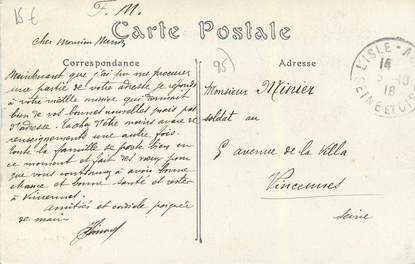 15€
F. M.
Carte Postale
Cher Monsieur
Correspondance
Maintenant que j'ai pu me procurer
une partie de votre adresse je réponds
à votre vieille missive qui donnait
bien de vos bonnes nouvelles mais pas
d'adresse. Tachez d'être moins avare de
renseignements une autre fois.
Toute la famille se porte bien en
ce moment et fait des vœux pour
que vous continuez à avoir bonne
chance et bonne santé et rester
à Vincennes.
Amitiés et cordiale poignée
de main
95
Adresse
Monsieur Minier
soldat au
5 avenue de la Villa
Vincennes
Seine
L'ISLE-AD
14
18
SEINE ET OISE